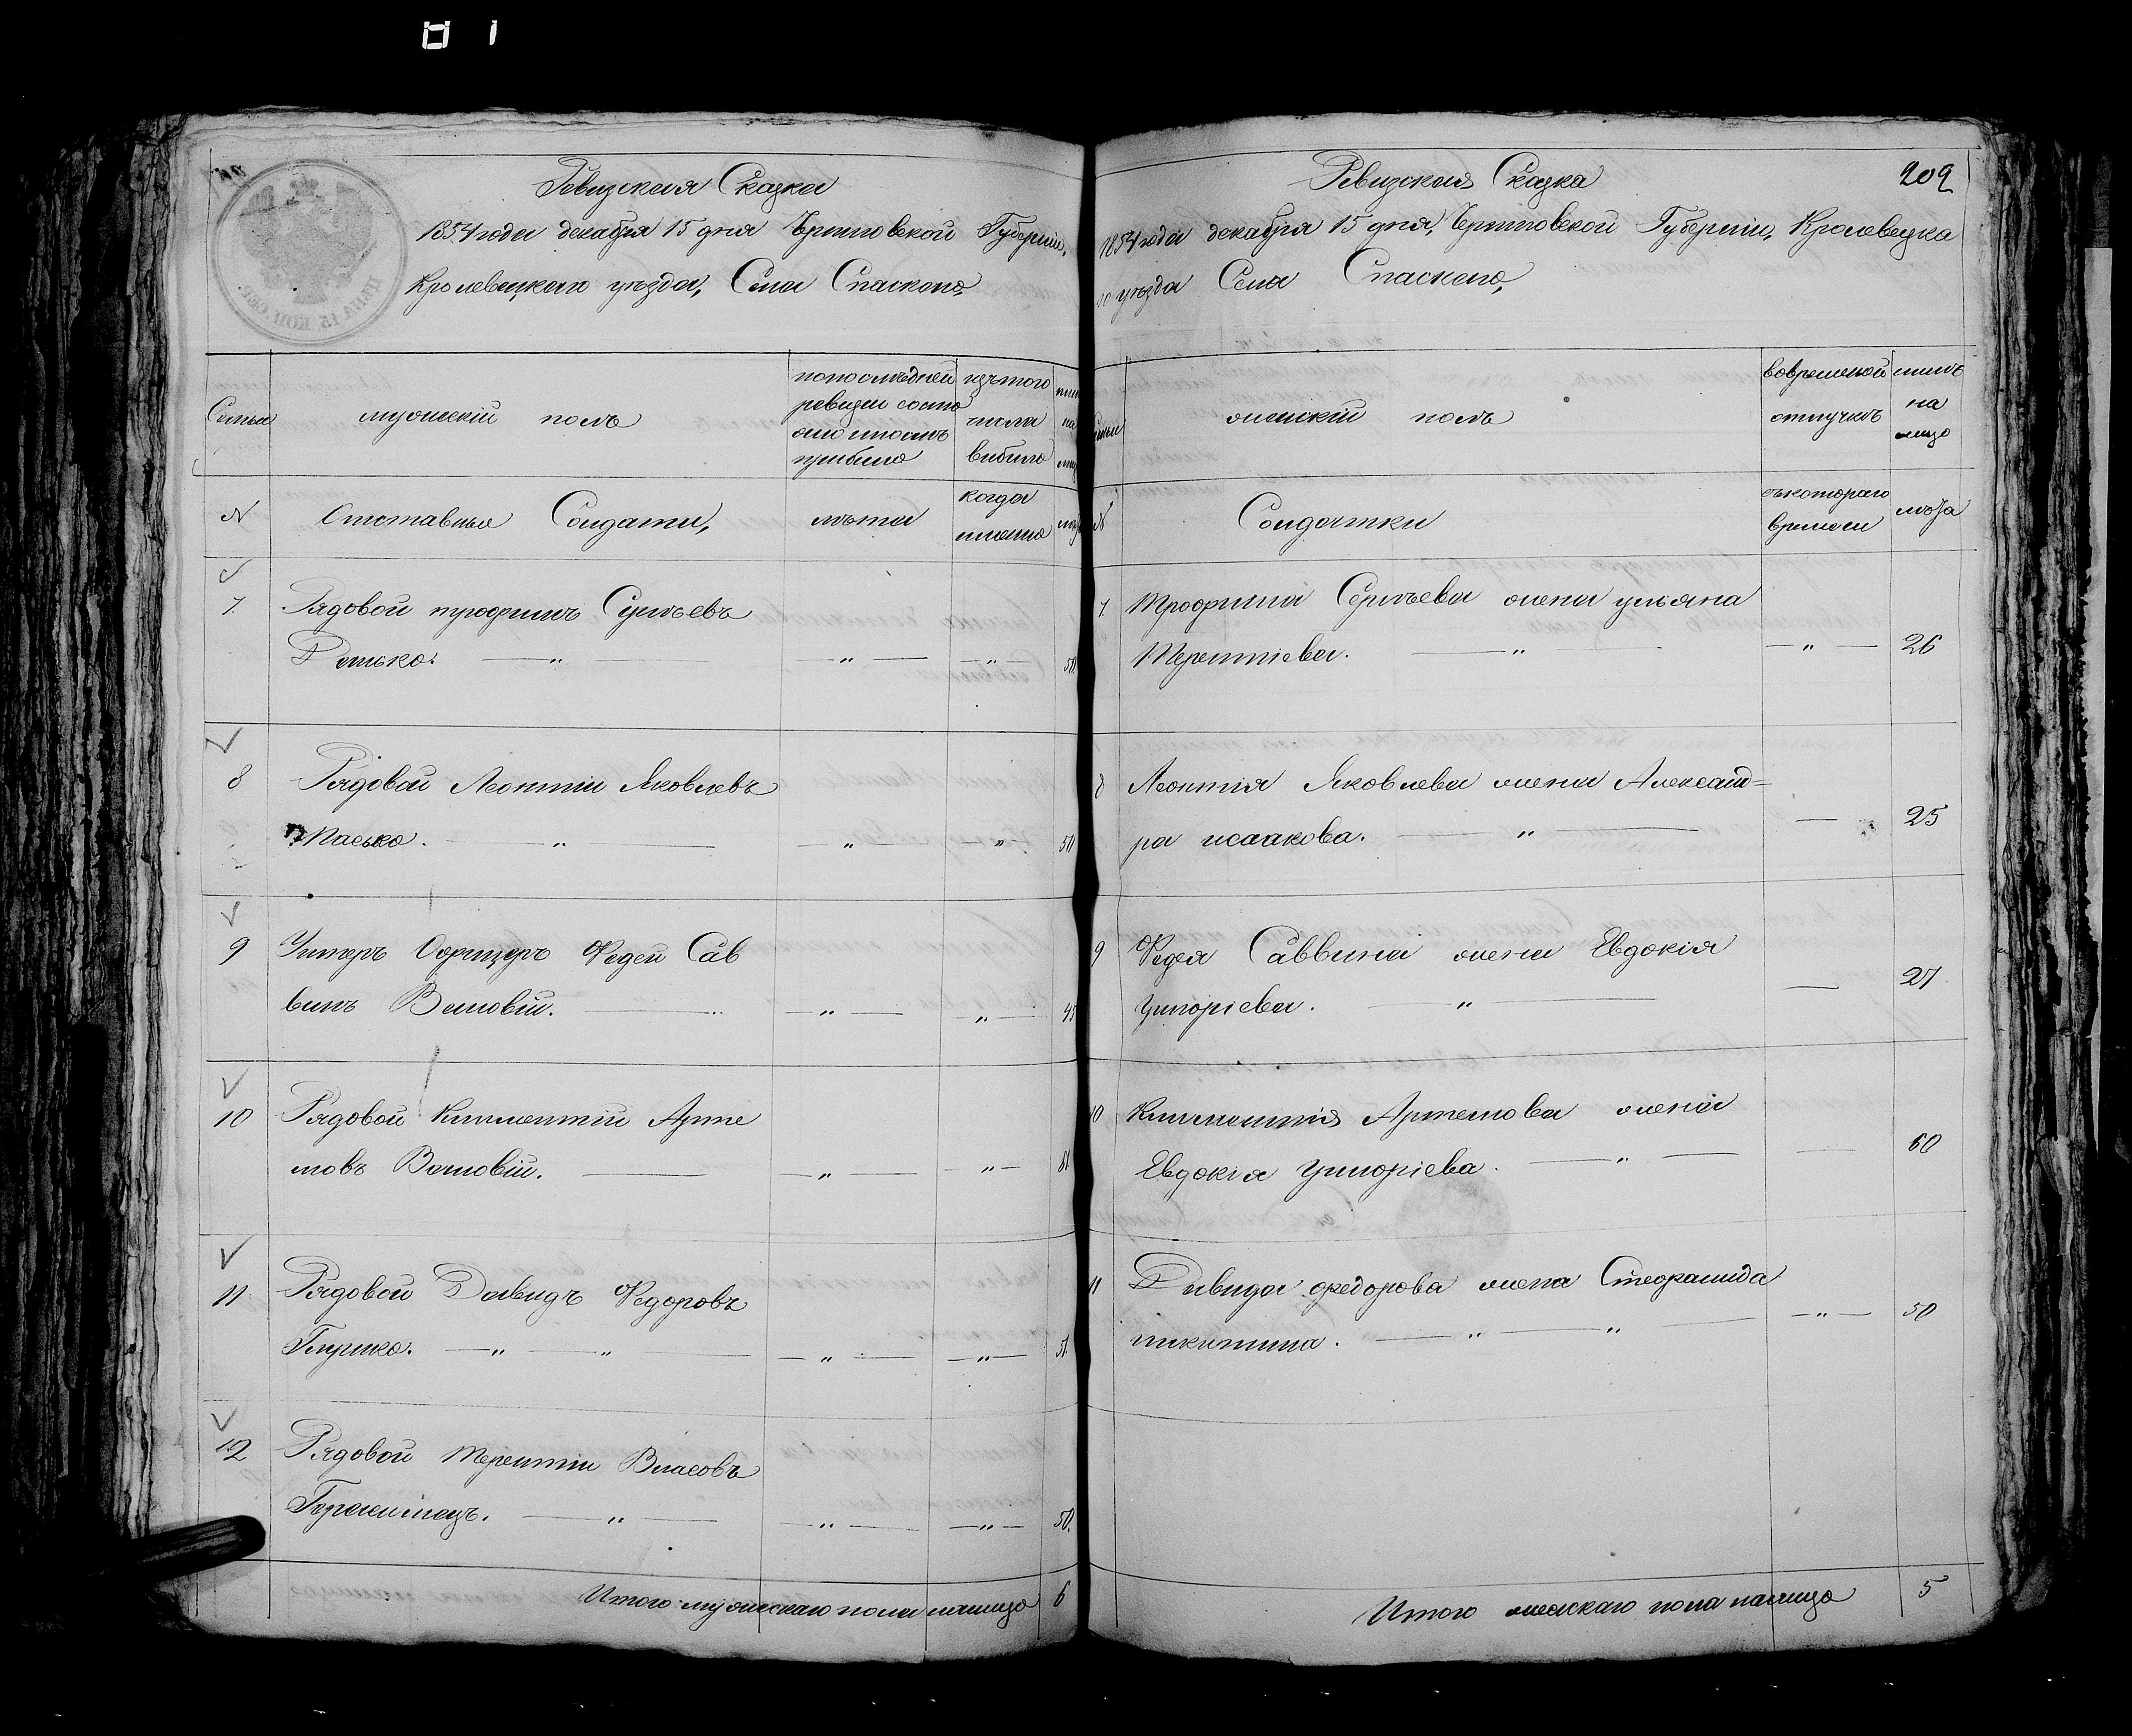 Ревизская Сказка
1854 года декабря 15 дня Черниговской Губерніи,
Кролевецкаго уѣзда, Села Спаского,
Семьи
мужескій полъ
попослѣдней
ревизіи состо
яло и послѣ
прибыло
изътого
числа
выбыло
№
Отставные Солдаты,
лѣта
когда
именно
7.
Рядовой трофимъ Сергѣевъ
50
8
Рядовой Леонтій Яковлевъ
Пасько.
50
9
Унтеръ Офицеръ Федей Сав
винъ
45
10
Рядовой Климентій Арте
мовъ
11
Рядовой Давидъ Федоровъ
Глушко.
51
12
Рядовой терентій Власовъ
50.
Итого мужескаго пола налицо 6
Ревизская Сказка
209
1854 года декабря 15 дня, Черниговской Губерніи, Кролевецка
го уѣзда Села Спаского,
женскій полъ
вовременой
отлучкѣ
на
лицо
№
Солдатки
съкотораго
времени
лѣта
7.
трофима Сергѣева жена ульяна
терентіева. 26
8
Леонтія Яковлева жена Александ=
ра исаакова. 25
9
Федея Саввина жена Евдокія
григоріева. 27
10
Климентія Артемова жена
Евдокія григоріева. 60
11
Давида федорова жена Стефанида
никитина. 50
Итого женскаго пола налицо 5